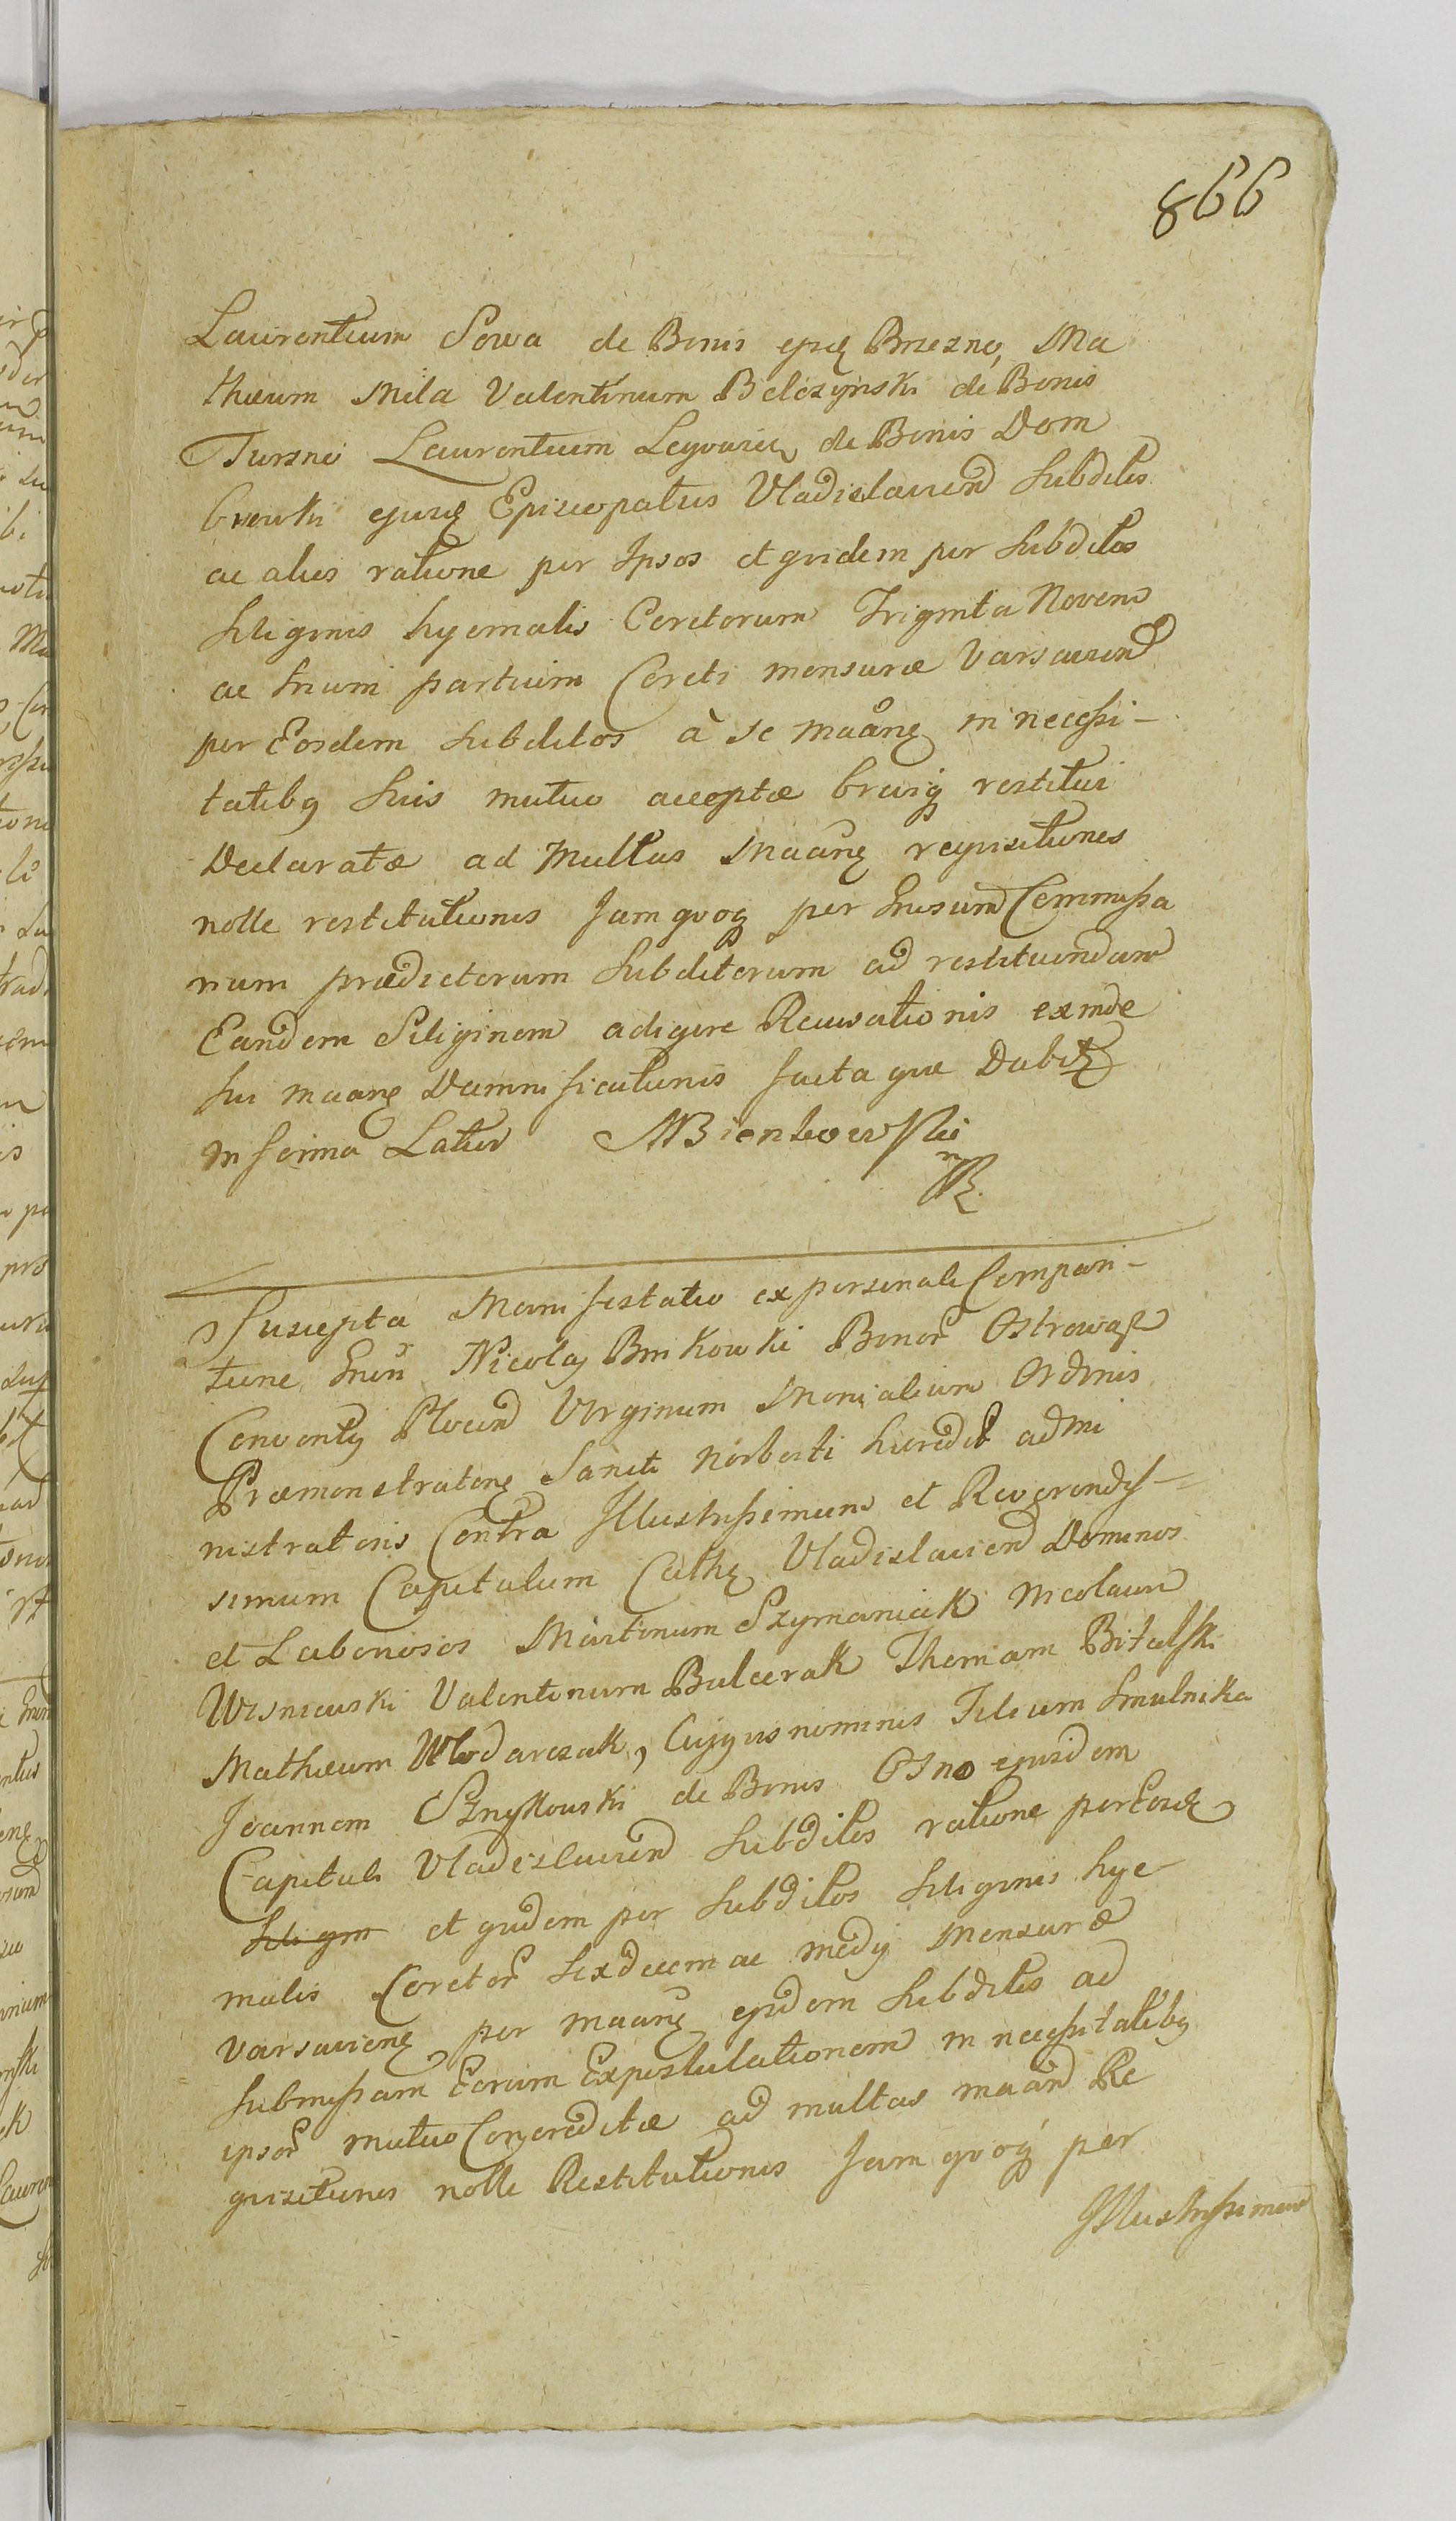 866
Laurentium Sowa de Bonis ejusq Brzezno, Ma
thæum Mila Valentinum Belczynski de Bonis
Turzno Laurentium de Bonis Dom
browki ejusq Episcopatus Vladislavien Subditos
ac alios ratione per Ipsos et quidem per Subditos
Siliginis hyemalis Coretorum Triginta Novem
ac trium partium Coreti mensuræ Varsavien
per Eosdem Subditos à se maãnq in necessi-
tatibq suis mutuo acceptæ breviq restitui
Declaratæ ad Multas Maãnq requisitiones
nolle restitutionis Jam quoq per Commissa
rium prædictorum Subditorum ad restituendam
Eandem Siliginem adigere Recusationis exinde
sui maanq Damnificationis facta quæ Dabitq
in forma Latior MBienkowski
mp
Suscepta Manifestatio ex personali Compari-
tione Gnsi Nicolaj Binkowski Bonor Ostrowąs
Conventq Plocen Virginum Monialium Ordinis
Præmonstratenq Sancti Norberti hæredit admi
nistratoris Contra Illustrissimum et Reverendis-
simum Capitulum Cathq Vladislavien Dominos
et Laboriosos Martinum Szymaniak Nicolaum
Wisniewski Valentinum Balcerak Thomam Bitalski
Mathæum Wlodarczak, Cujqvis nominis Filium Smulnika
Joannem de Bonis Osno ejusdem
Capituli Vladislavien Subditos ratione per Eosdq
Siligin et quidem per Subditos Siliginis hye-
malis Coretor Sexdecem ac medij Mensuræ
Varsavienq per maanq ejsdem Subditis ad
Submissam Eorum Expostulationem in necessitatibq
ipsor mutuo Concreditæ ad multas maan Re
quisitiones nolle Restitutionis Jam quoq per
Illustrissimum